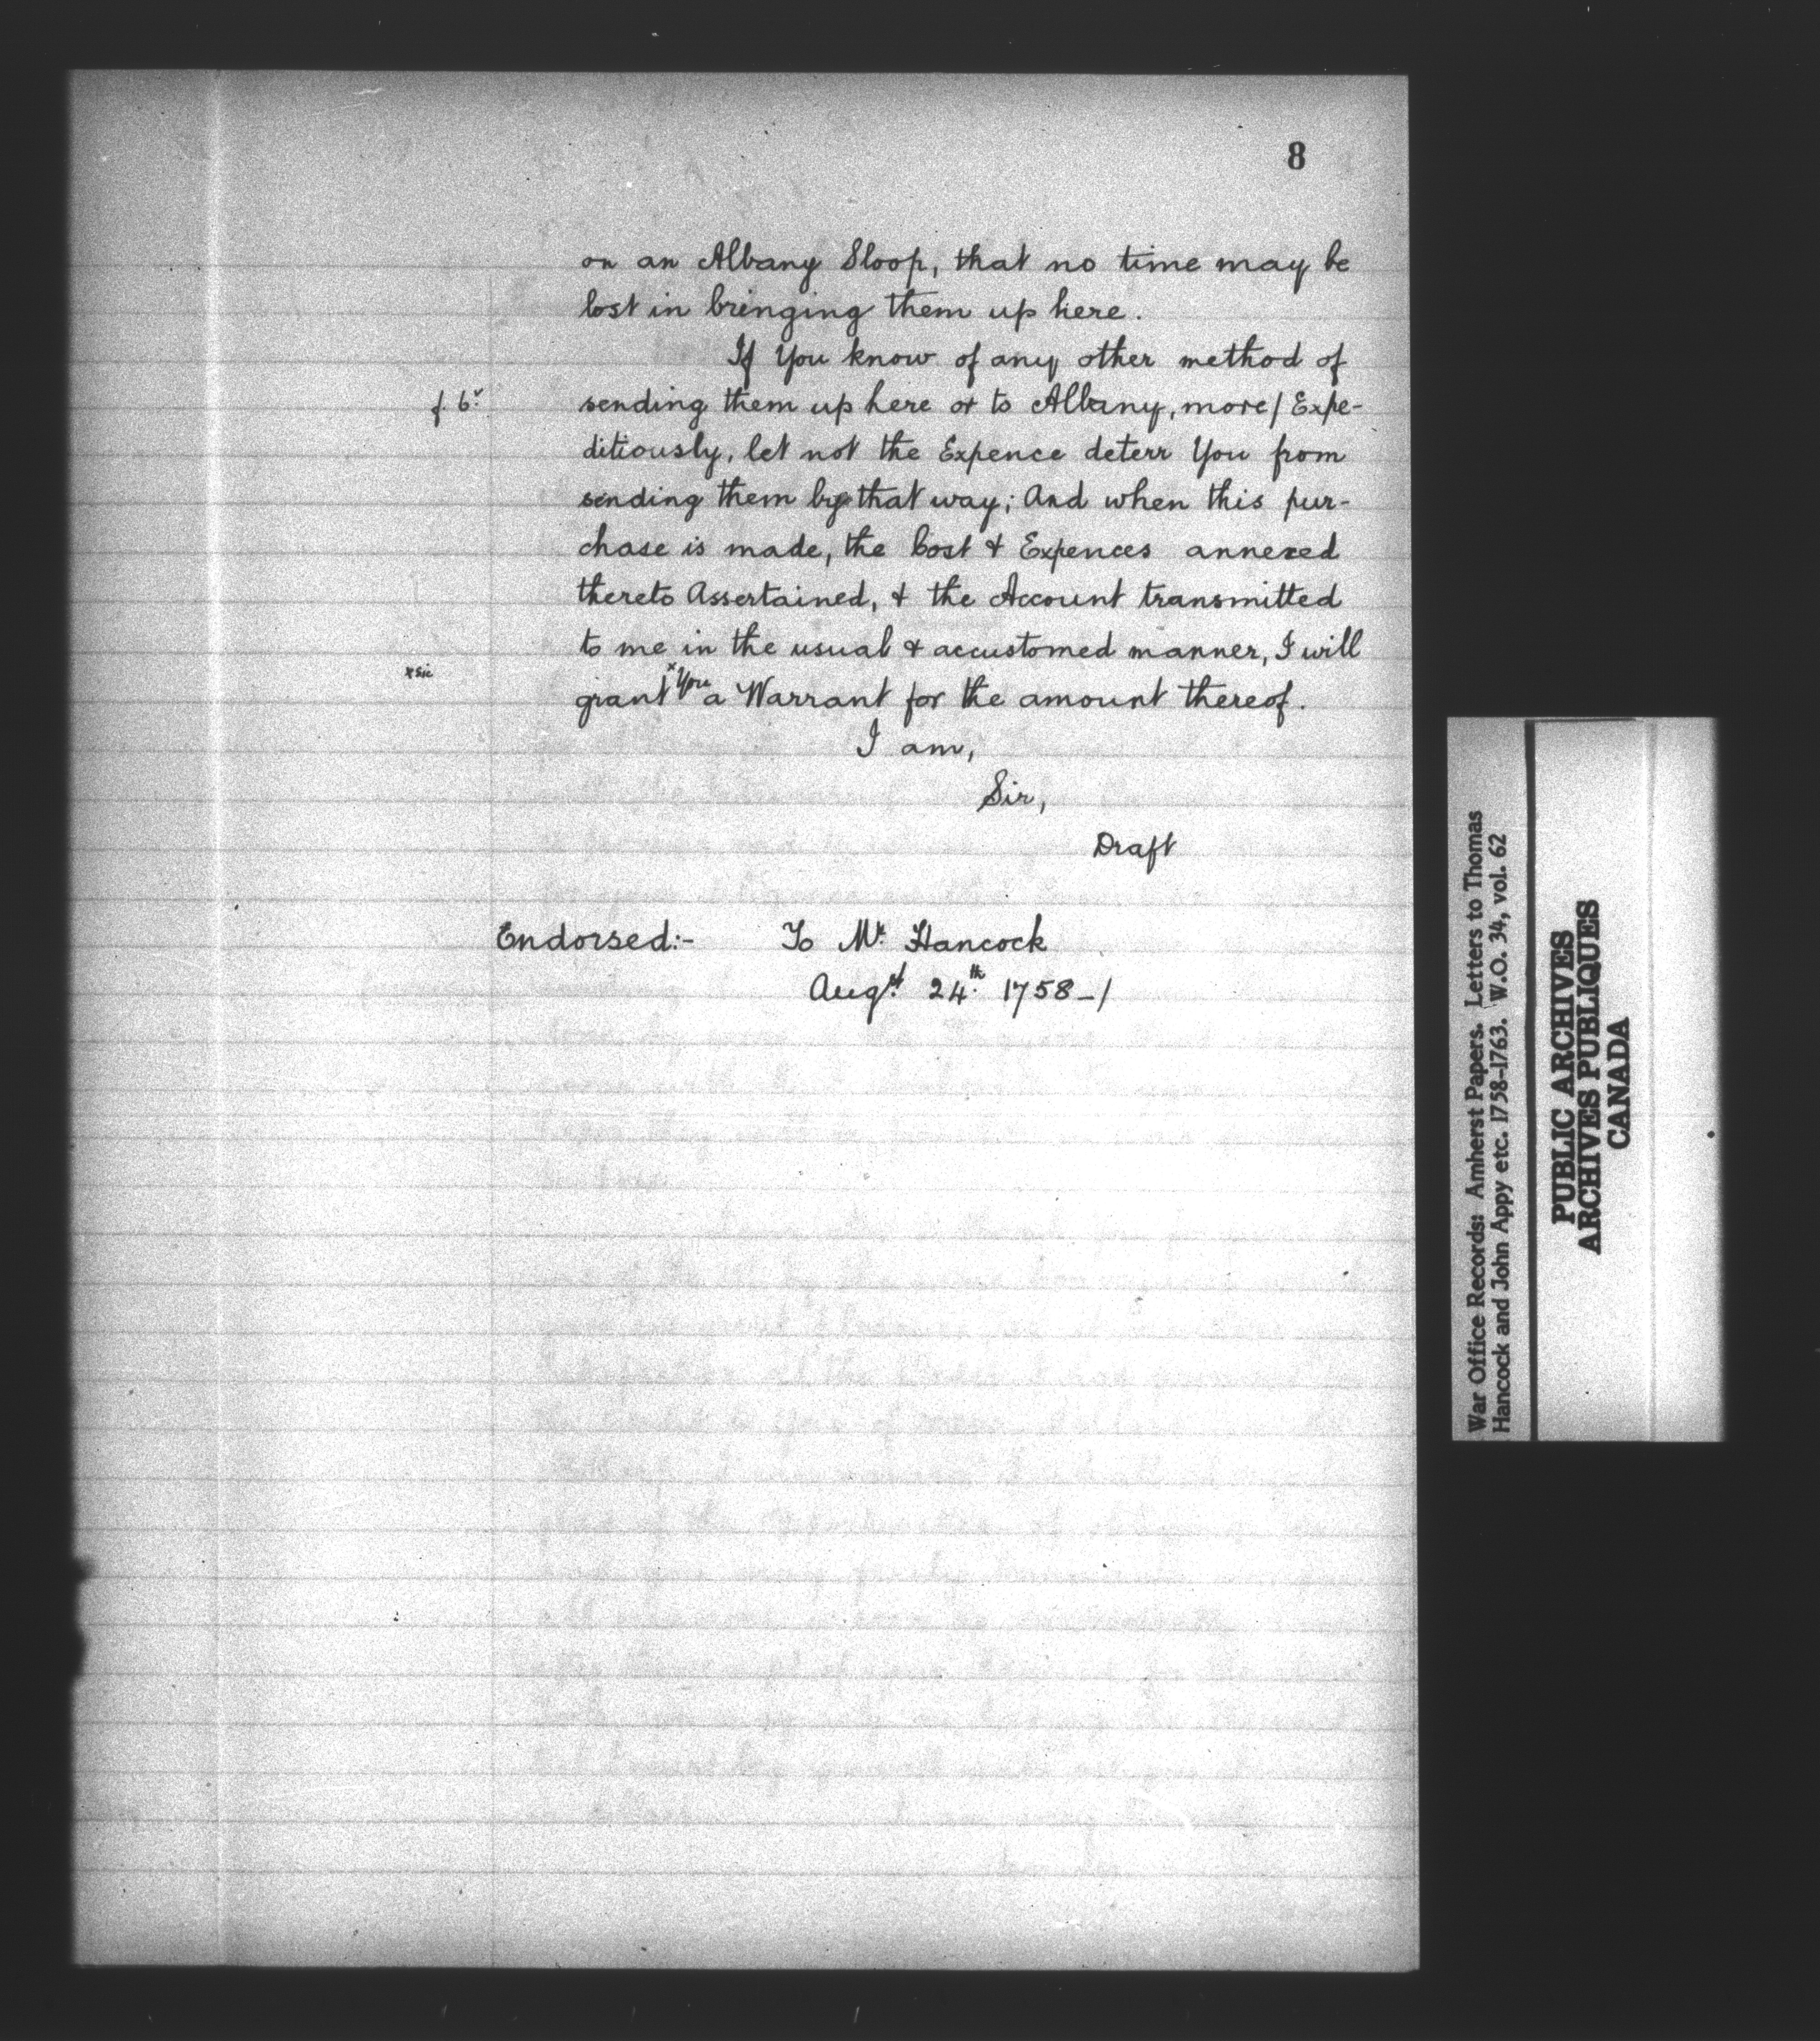 8
on an Albany Sloop, that no time may be
lost in bringing them up here.
If You know of any other method of
f. 6v. sending them up here or to Albany, more / Expe-
ditiously, let not the Expence deterr You from
sending them by that way; And when this pur-
chase is made, the Cost & Expences annexed
thereto Assertained, & the Account transmitted
to me in the usual & accustomed manner, I will
x sic grant x You a Warrant for the amount thereof.
I am,
Sir,
Draft
Endorsed:- To Mr. Hancock
Augst. 24th. 1758_/
War Office Records: Amherst Papers. Letters to Thomas
Hancock and John Appy etc. 1758-1763. W.O. 34, vol. 62
PUBLIC ARCHIVES
ARCHIVES PUBLIQUES
CANADA